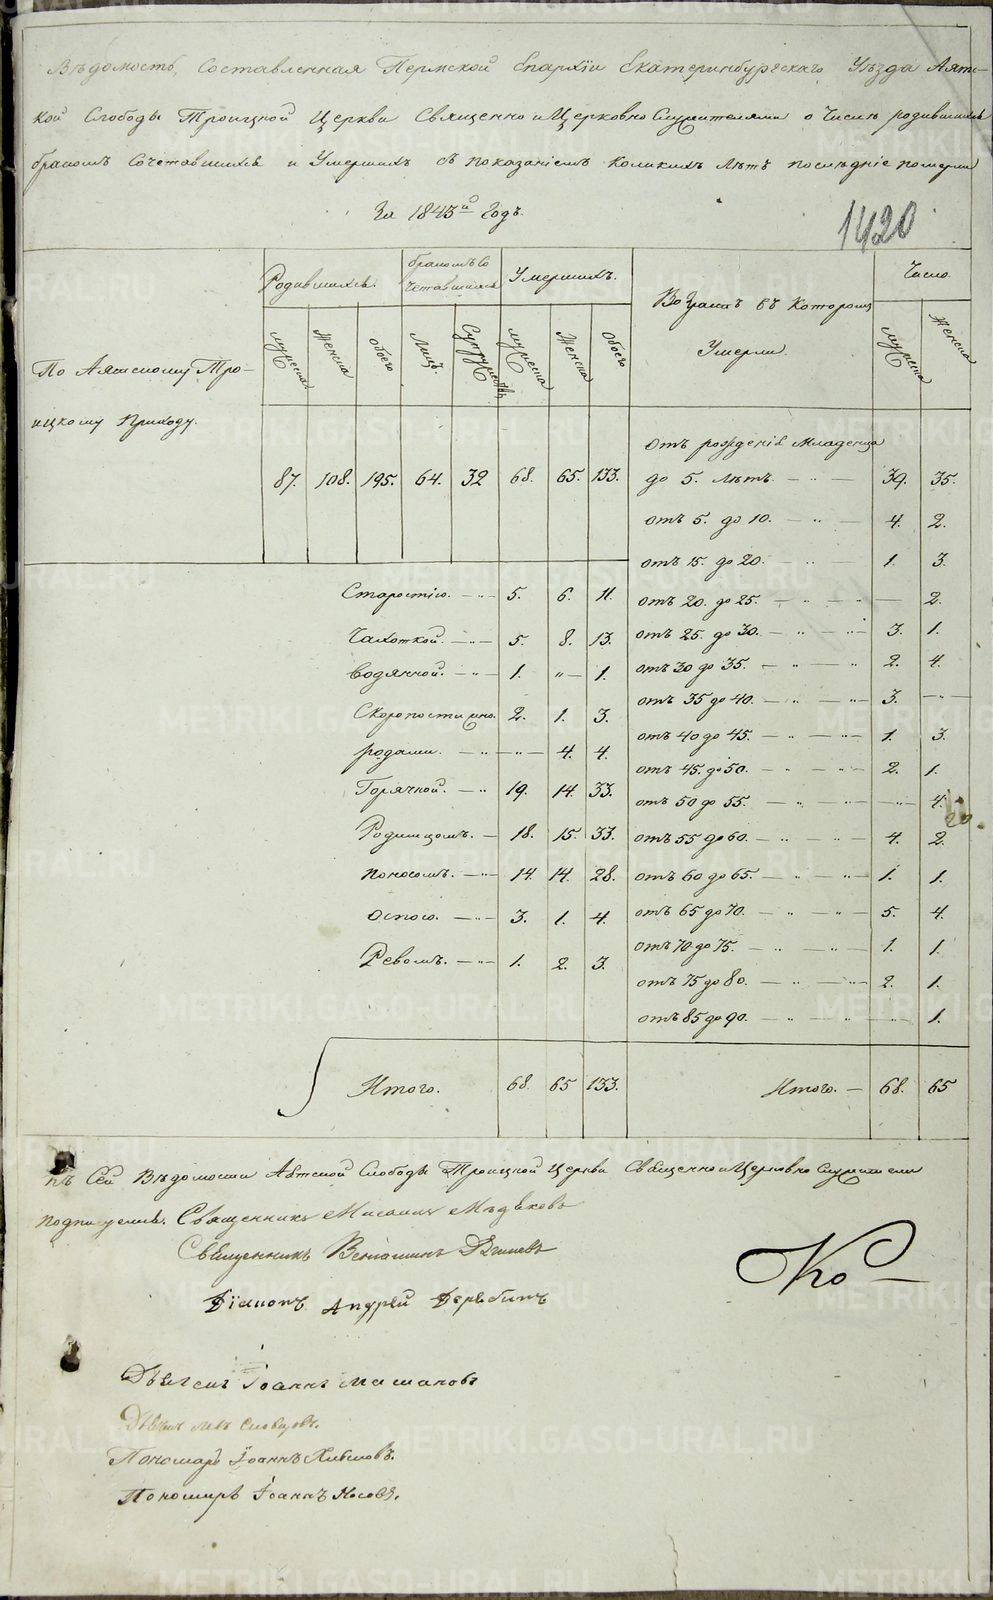 Вѣдомость, Составленная Пермской Епархіи Екатеринбургскаго Уѣзда Аятс-
кой Слободы Троицкой Церкви Священно и Церковно Служителями о Числѣ родившихся
бракомъ Сочетавшихся и Умершихъ съ показаніемъ коликихъ Лѣтъ послѣдніе померли
За 1843й Годъ.
1420
По Аятскому Тро-
ицкому Приходу.
Родившихся.
бракомъ со
четавшихся
Умершихъ.
Возрастъ въ Которомъ
Умерли.
Число.
мужеска
Женска
обоего
Лицъ.
Супружествъ
мужеска
Женска
Обоего
мужеска
Женска
87. 108. 195. 64. 32 68. 65. 133.
Отъ рожденія Младенца
до 5. лѣтъ. — „ — 39. 35.
отъ 5. до 10. — „ — 4. 2.
отъ 15. до 20. „ — 1. 3.
отъ 20. до 25. — „ — — 2.
отъ 25. до 30. — „ — „ 3. 1.
отъ 30 до 35. — „ — „ 2. 4.
отъ 35 до 40. — „ — „ 3. — „ —
отъ 40 до 45. — „ — „ 1. 3.
отъ 45. до 50. — „ — „ 2. 1.
отъ 50 до 55. — „ — — „ — 4.
20.
отъ 55 до 60. — „ — „ 4. 2.
отъ 60 до 65. — „ — „ 1. 1.
отъ 65 до 70. — „ — „ 5. 4.
отъ 70 до 75. — „ — „ 1. 1.
отъ 75 до 80. — „ — „ 2. 1.
отъ 85 до 90. — „ — „ „ 1.
Старостію. — „ 5. 6. 11.
Чахоткой. — „ — 5. 8. 13.
водяной. — „ — 1. „ — 1.
Скоропостижно. 2. 1. 3.
родами. — „ — „ — 4. 4.
Горячкой. — „ 19. 14. 33.
Родимцомъ. — 18. 15. 33.
поносомъ. — „ 14. 14. 28.
Оспою. — „ 3. 1. 4.
Ревомъ. — „ 1. 2. 3.
Итого. 68. 65 133.
Итого. — 68. 65
Къ Сей Вѣдомости Аятской Слободы Троицкой Церкви Священно и Церковно Служители
подписуемся. Священникъ Мисаилъ Мѣдяковъ
Священникъ Веніаминъ
Діаконъ Андрей Дерябинъ
Дьячекъ Іоаннъ Машановъ
Дьячекъ Левъ Словцовъ.
Пономарь Іоаннъ Хлыновъ.
Пономарь Іоаннъ Носовъ.
Ко —
METRIKI.GASO-URAL.RU